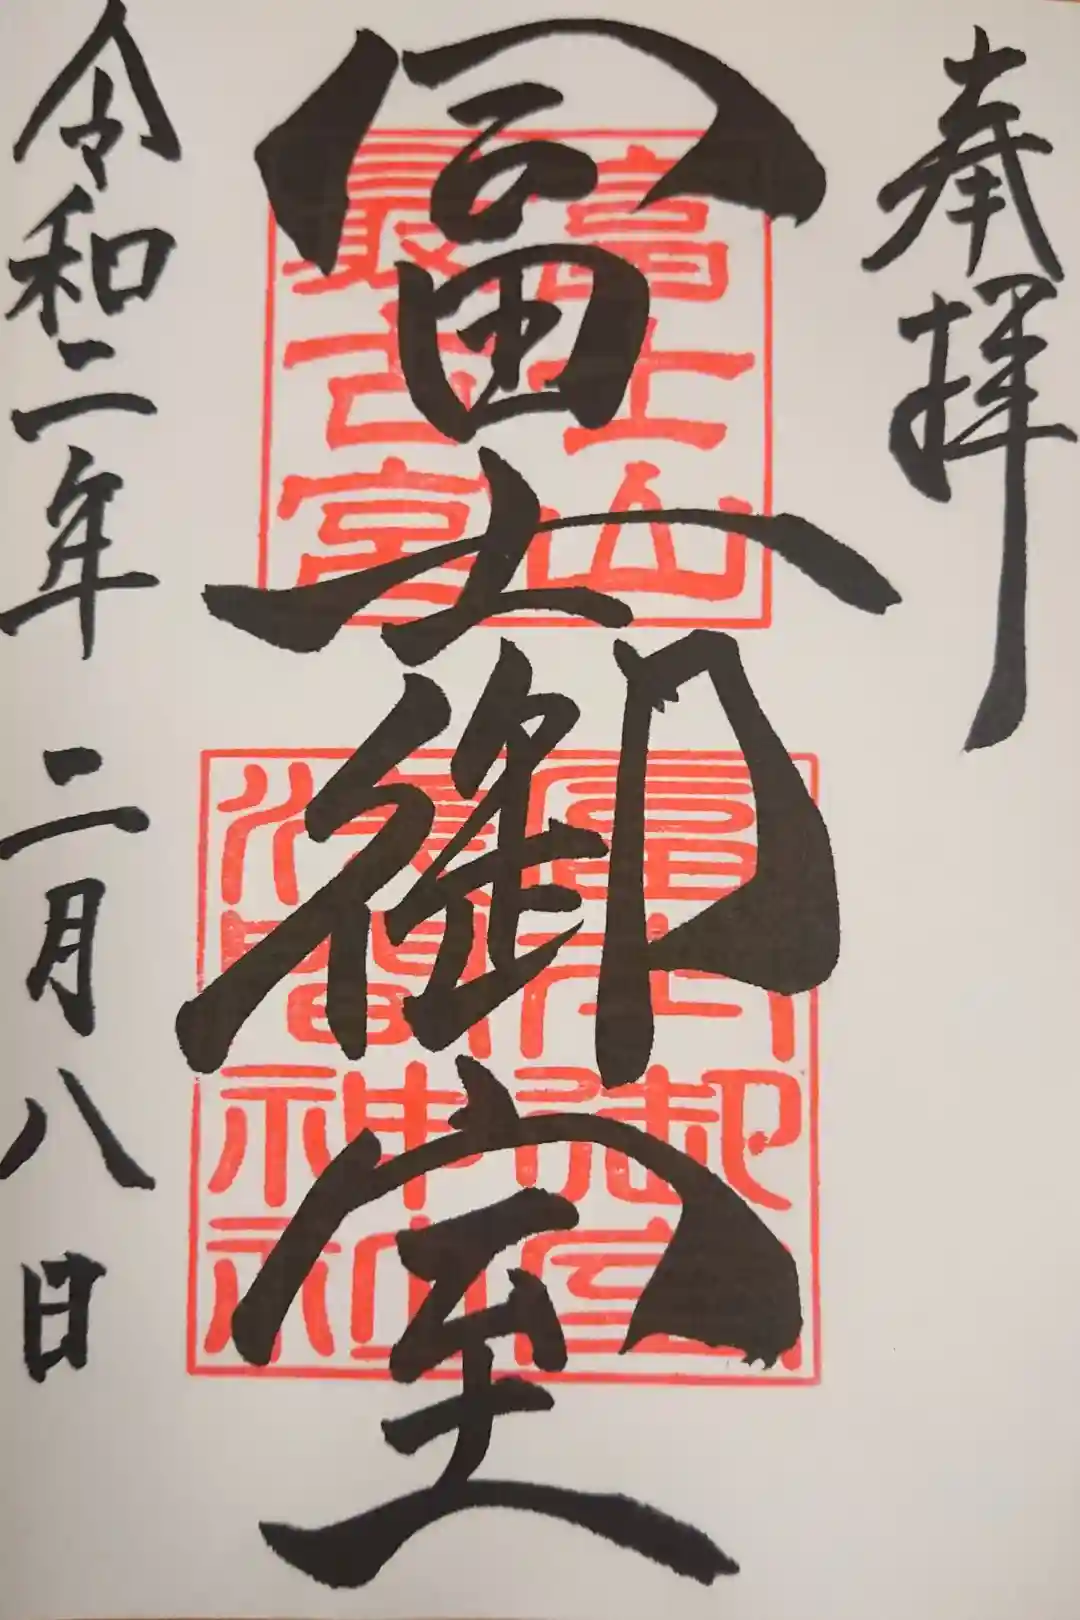 奉拝
冨士御室
富士山
最古宮
富士御室
浅間神社
令和二年 二月八日